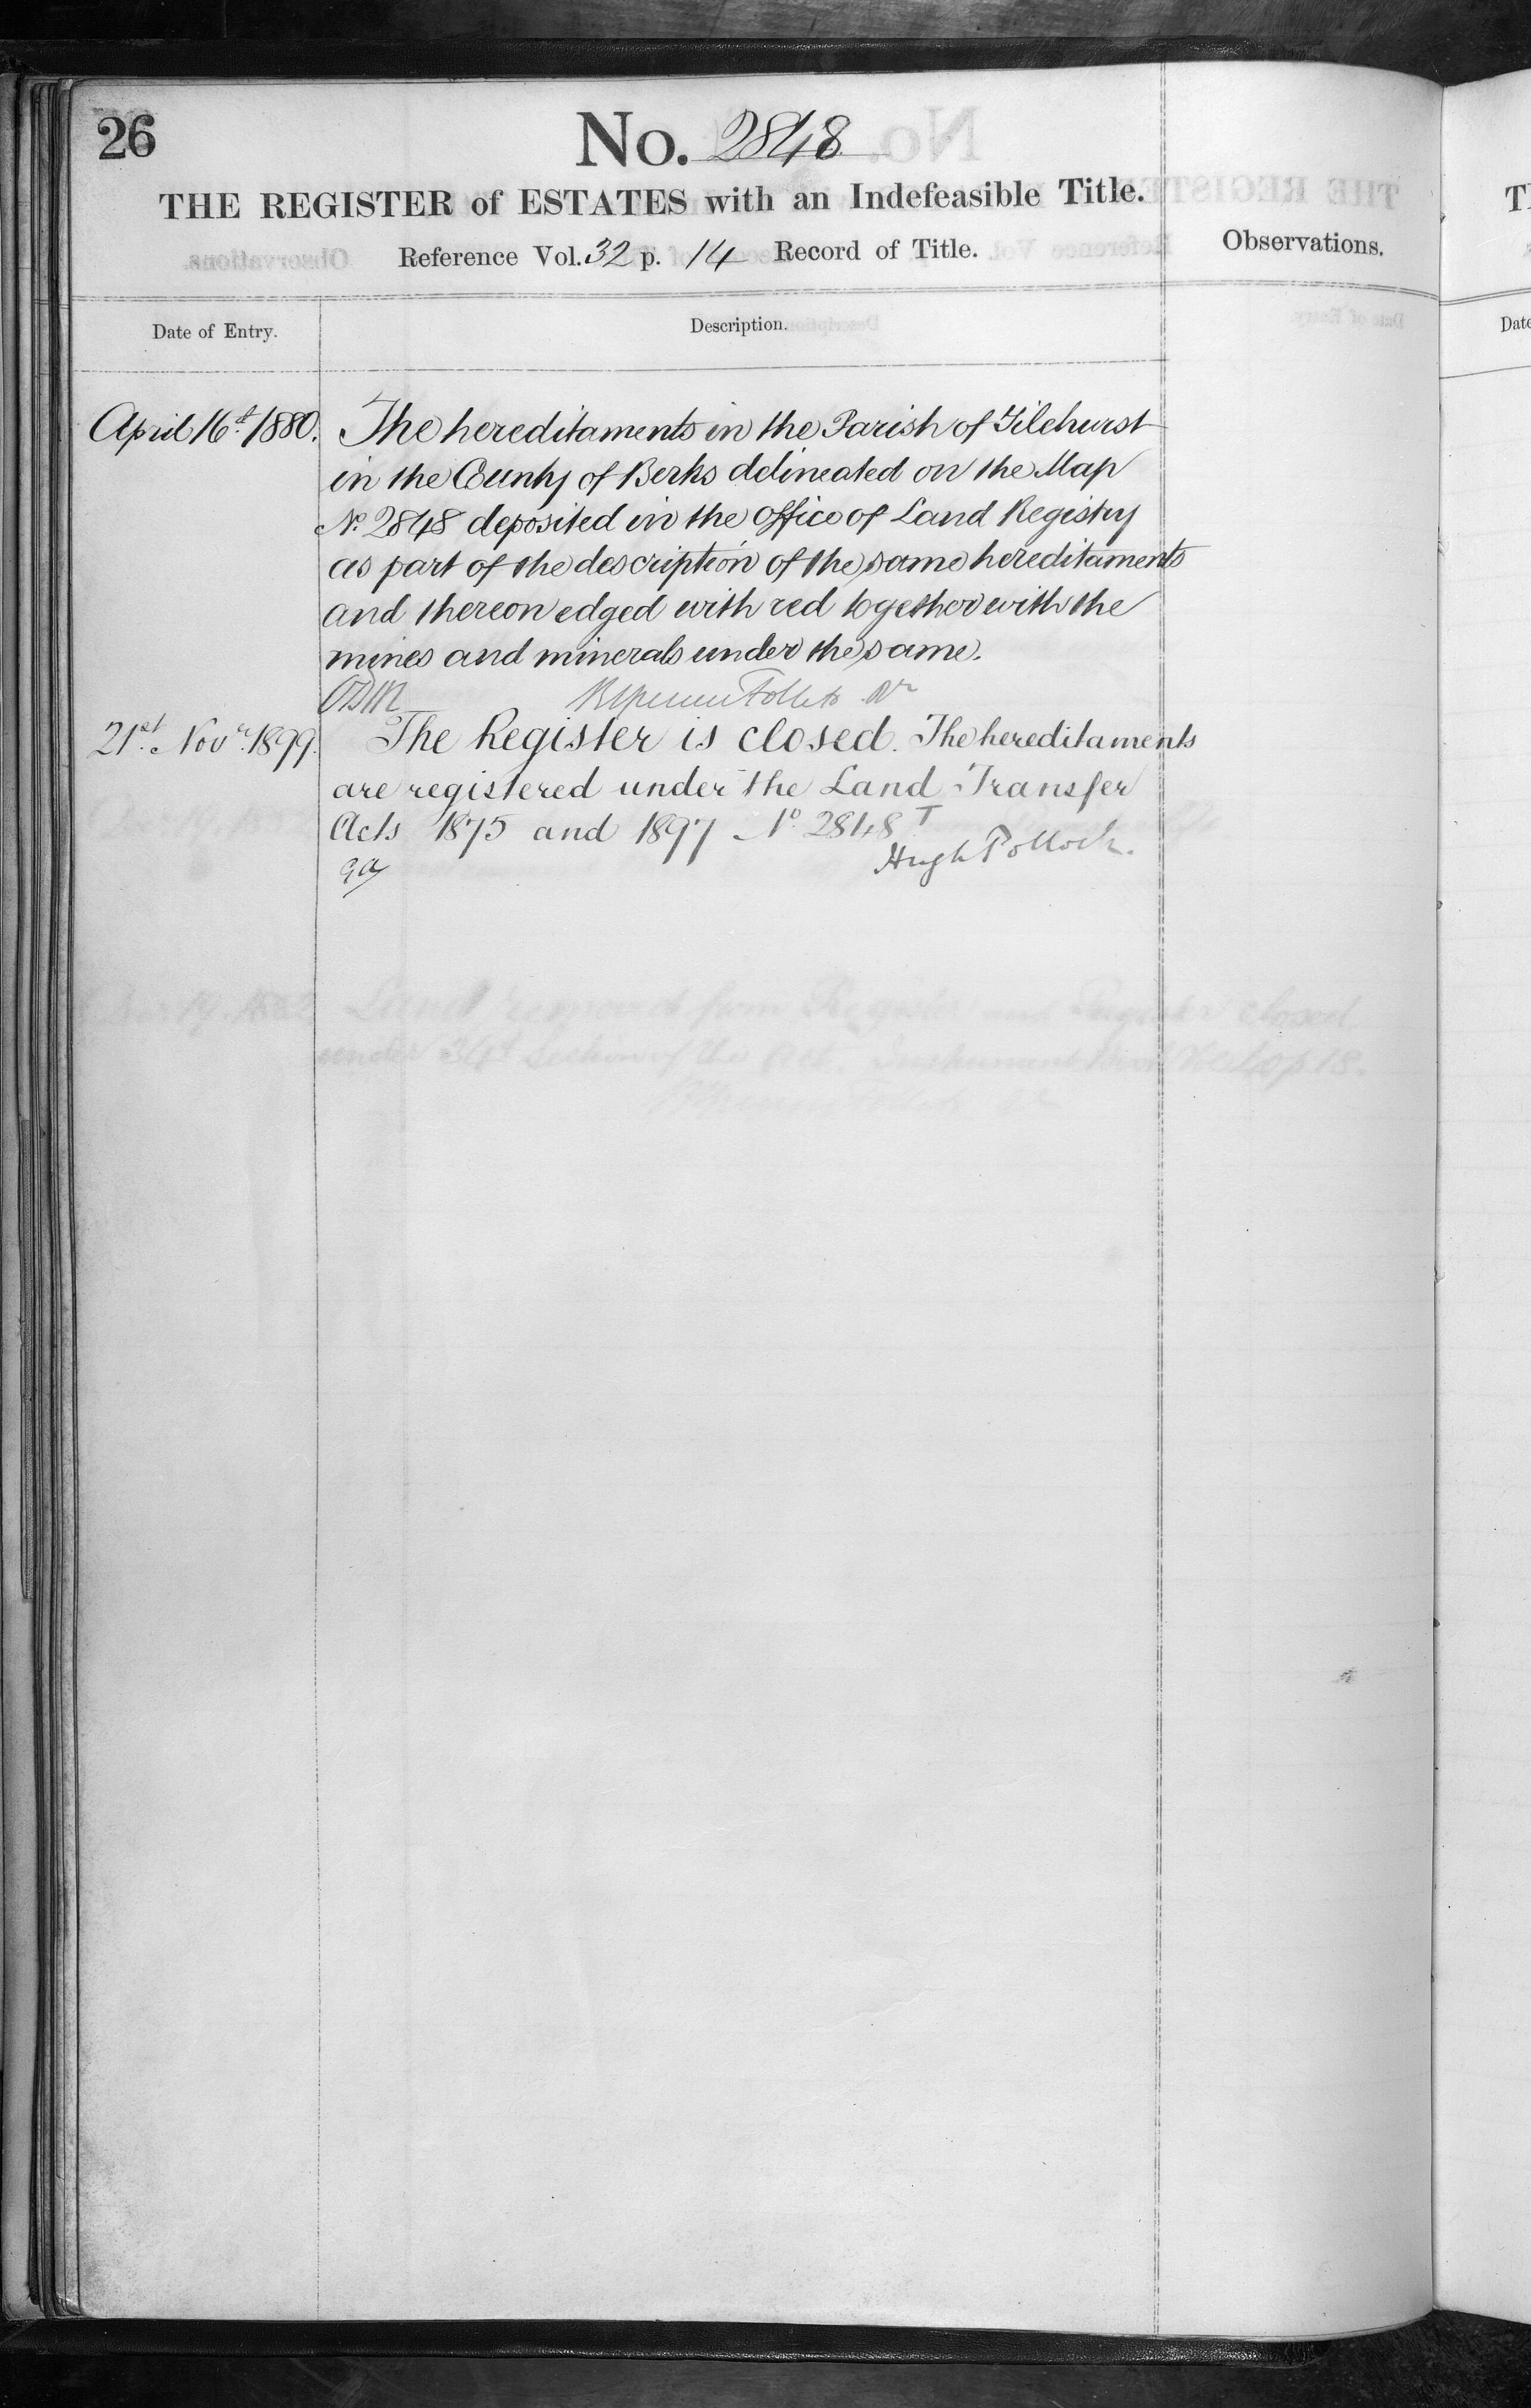 26
No. 2848
THE REGISTER of ESTATES with an Indefeasible Title.
Reference Vol. 32 p. 14 Record of Title.
Observations.
Date of Entry.
Description.
April 16th 1880. The hereditaments in the Parish of Tilehurst
in the County of Berks delineated on the Map
No. 2848 deposited in the office of Land Registry
as part of the description of the same hereditaments
and thereon edged with red together with the
mines and minerals under the same.
21st Novr. 1899. The Register is closed. The hereditaments
are registered under the Land Transfer
Acts 1875 and 1897 No 2848 T
Hugh Pollock.
Land removed from Register and Register closed
under 34th Section of the Act.